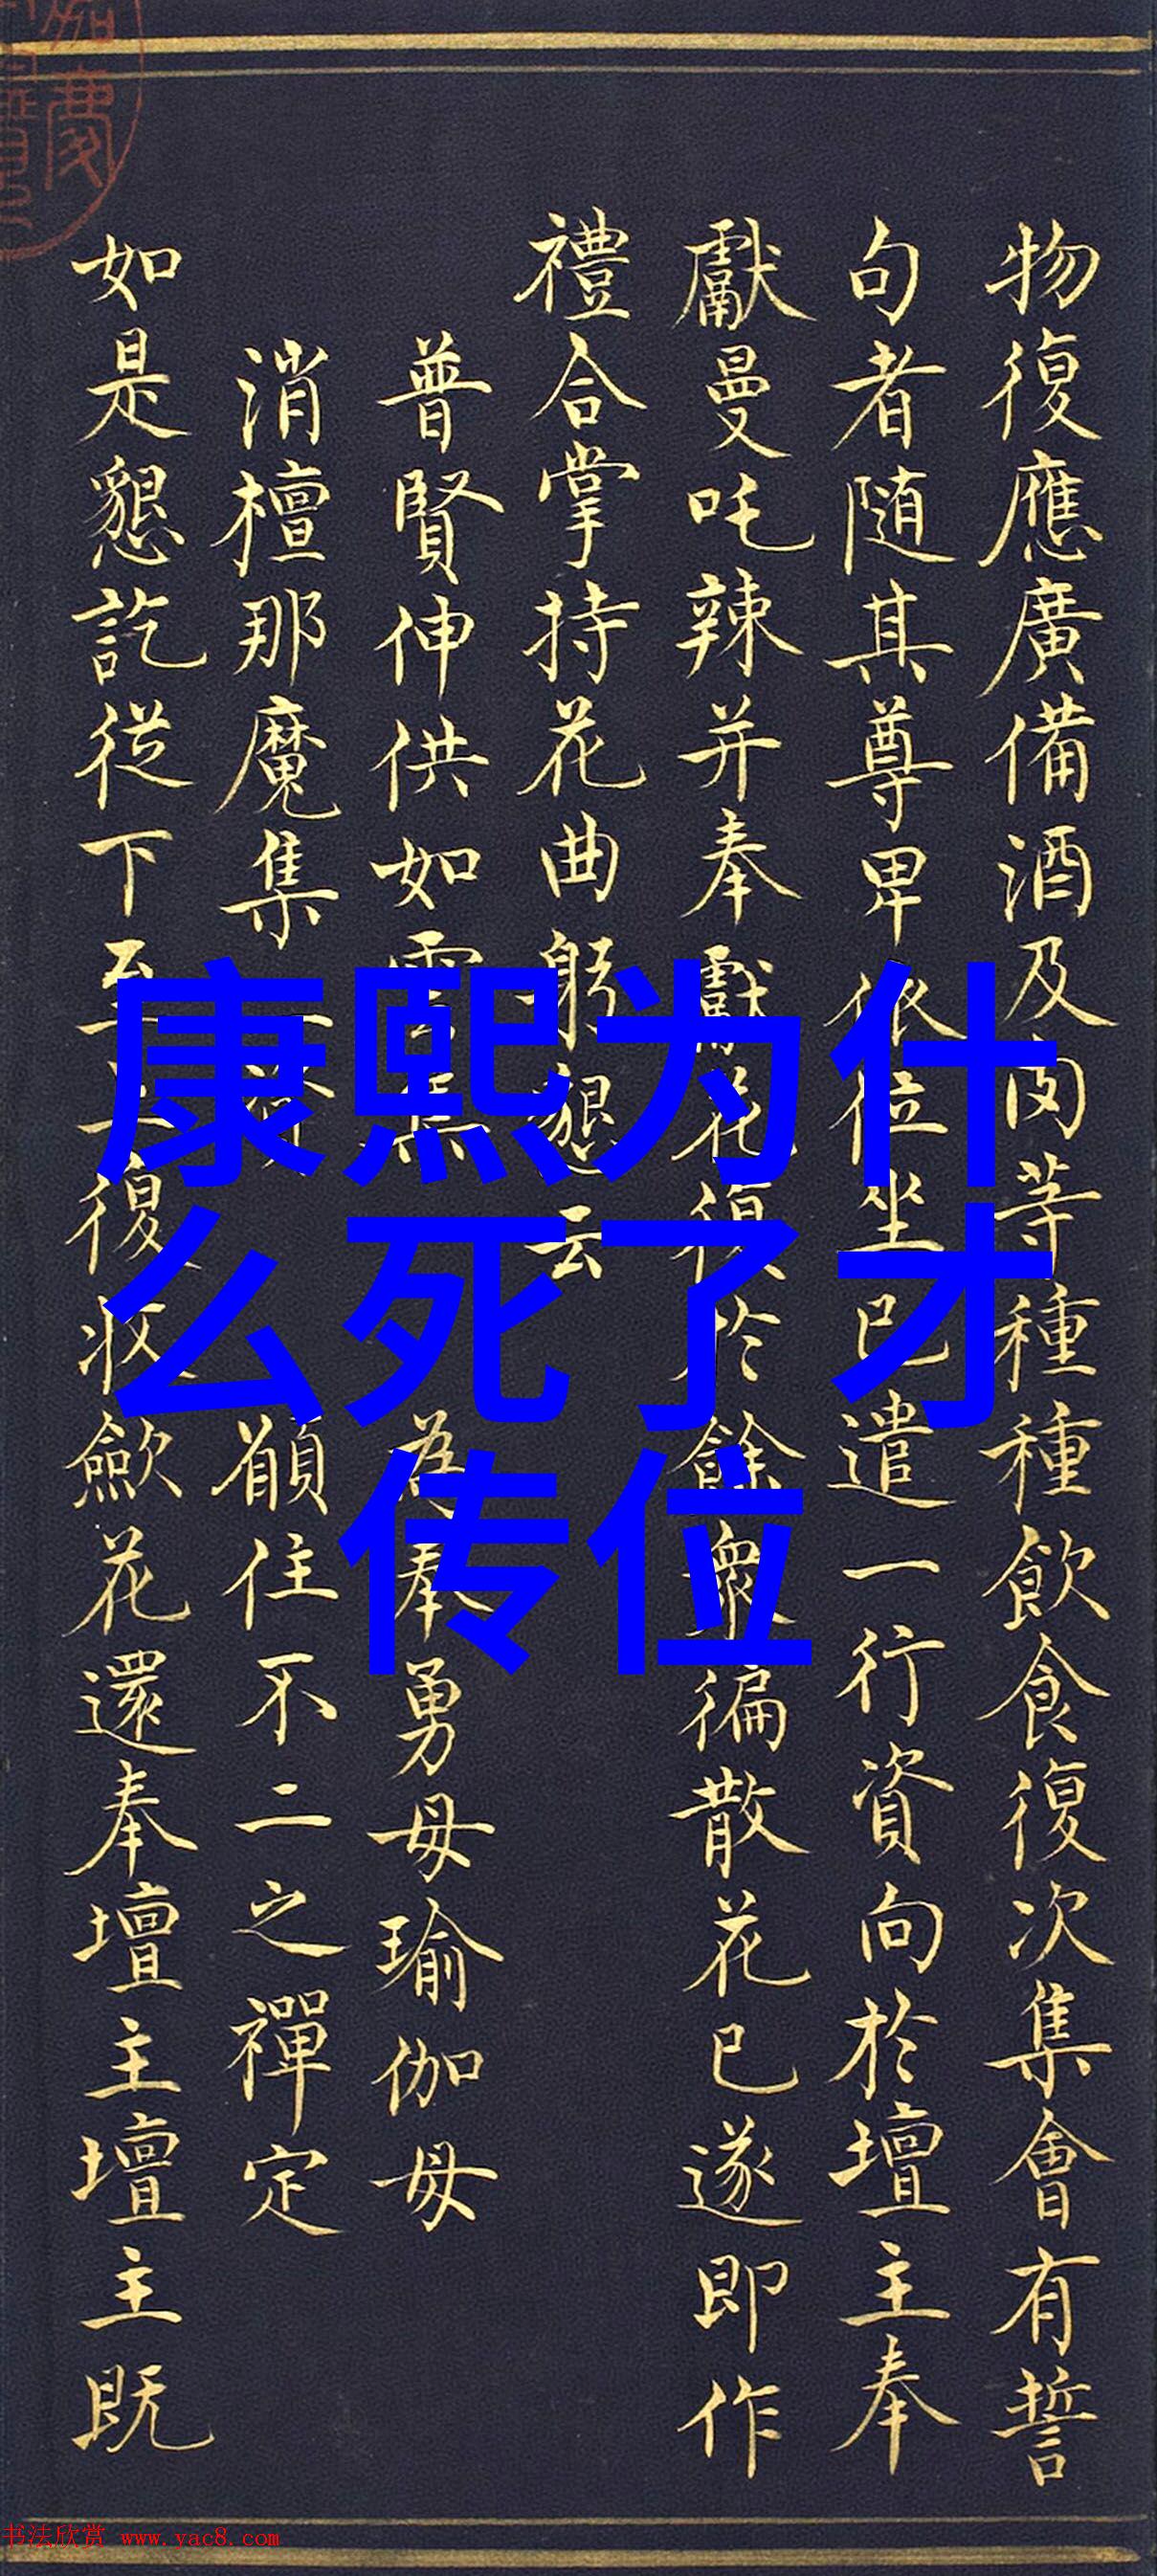 物復應廣備酒及肉等種種飲食復次集會有誓
句者随其尊卑依位坐已遣一行資向於壇主奉
獻曼吒辣并奉獻花復於餘衆徧散花已遂即作
禮合掌持花曲躬懇云
普賢伸供如雲 為奉勇母瑜伽母
消檀那魔集 願住不二之禪定
如是懇訖從下至上復收歛花還奉壇主壇主既
康熙为什
么死了才
传位
书法欣赏 www.yac8.com